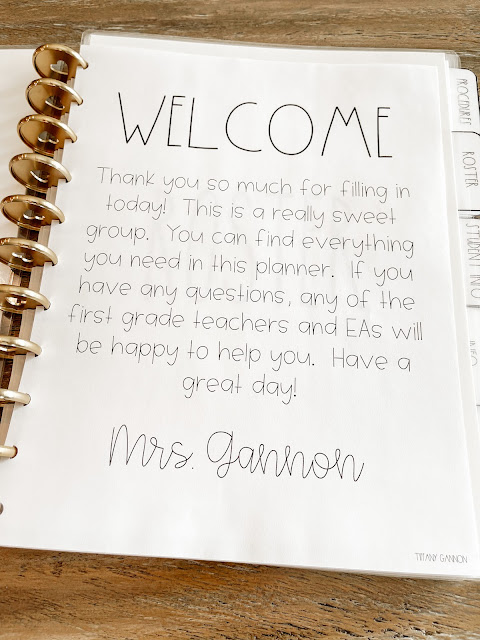 WELCOME
Thank you so much for filling in
today! This is a really sweet
group. You can find everything
you need in this planner. If you
have any questions, any of the
first grade teachers and EAs will
be happy to help you. Have a
great day!
Mrs. Gannon
TIFFANY GANNON
PROCEDURES
ROSTER
STUDENT INFO